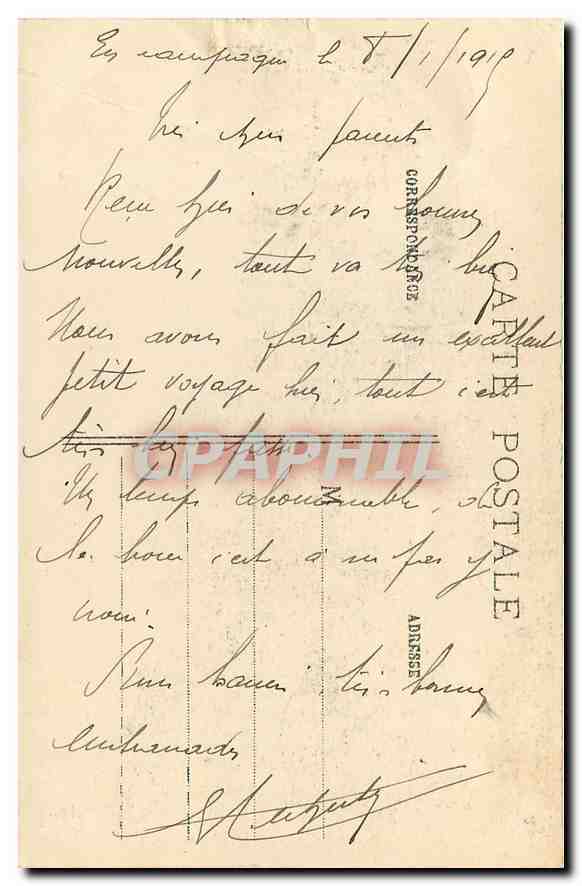 En campagne le 8/1/1915
Très chers parents
Reçu hier de vos bonnes
nouvelles, tout va très bien
Nous avons fait un excellent
petit voyage hier, tout s'est
très bien passé.
Un temps abominable, de
la boue c'est à ne pas y
croire.
Bons baisers, très bonnes
embrassades
CORRESPONDANCE
CARTE POSTALE
M
ADRESSE
CPAPHIL